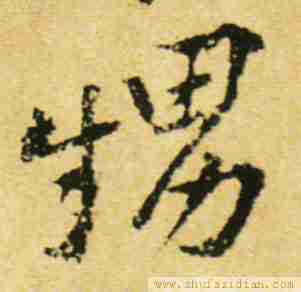 甥
www.shufazidian.com